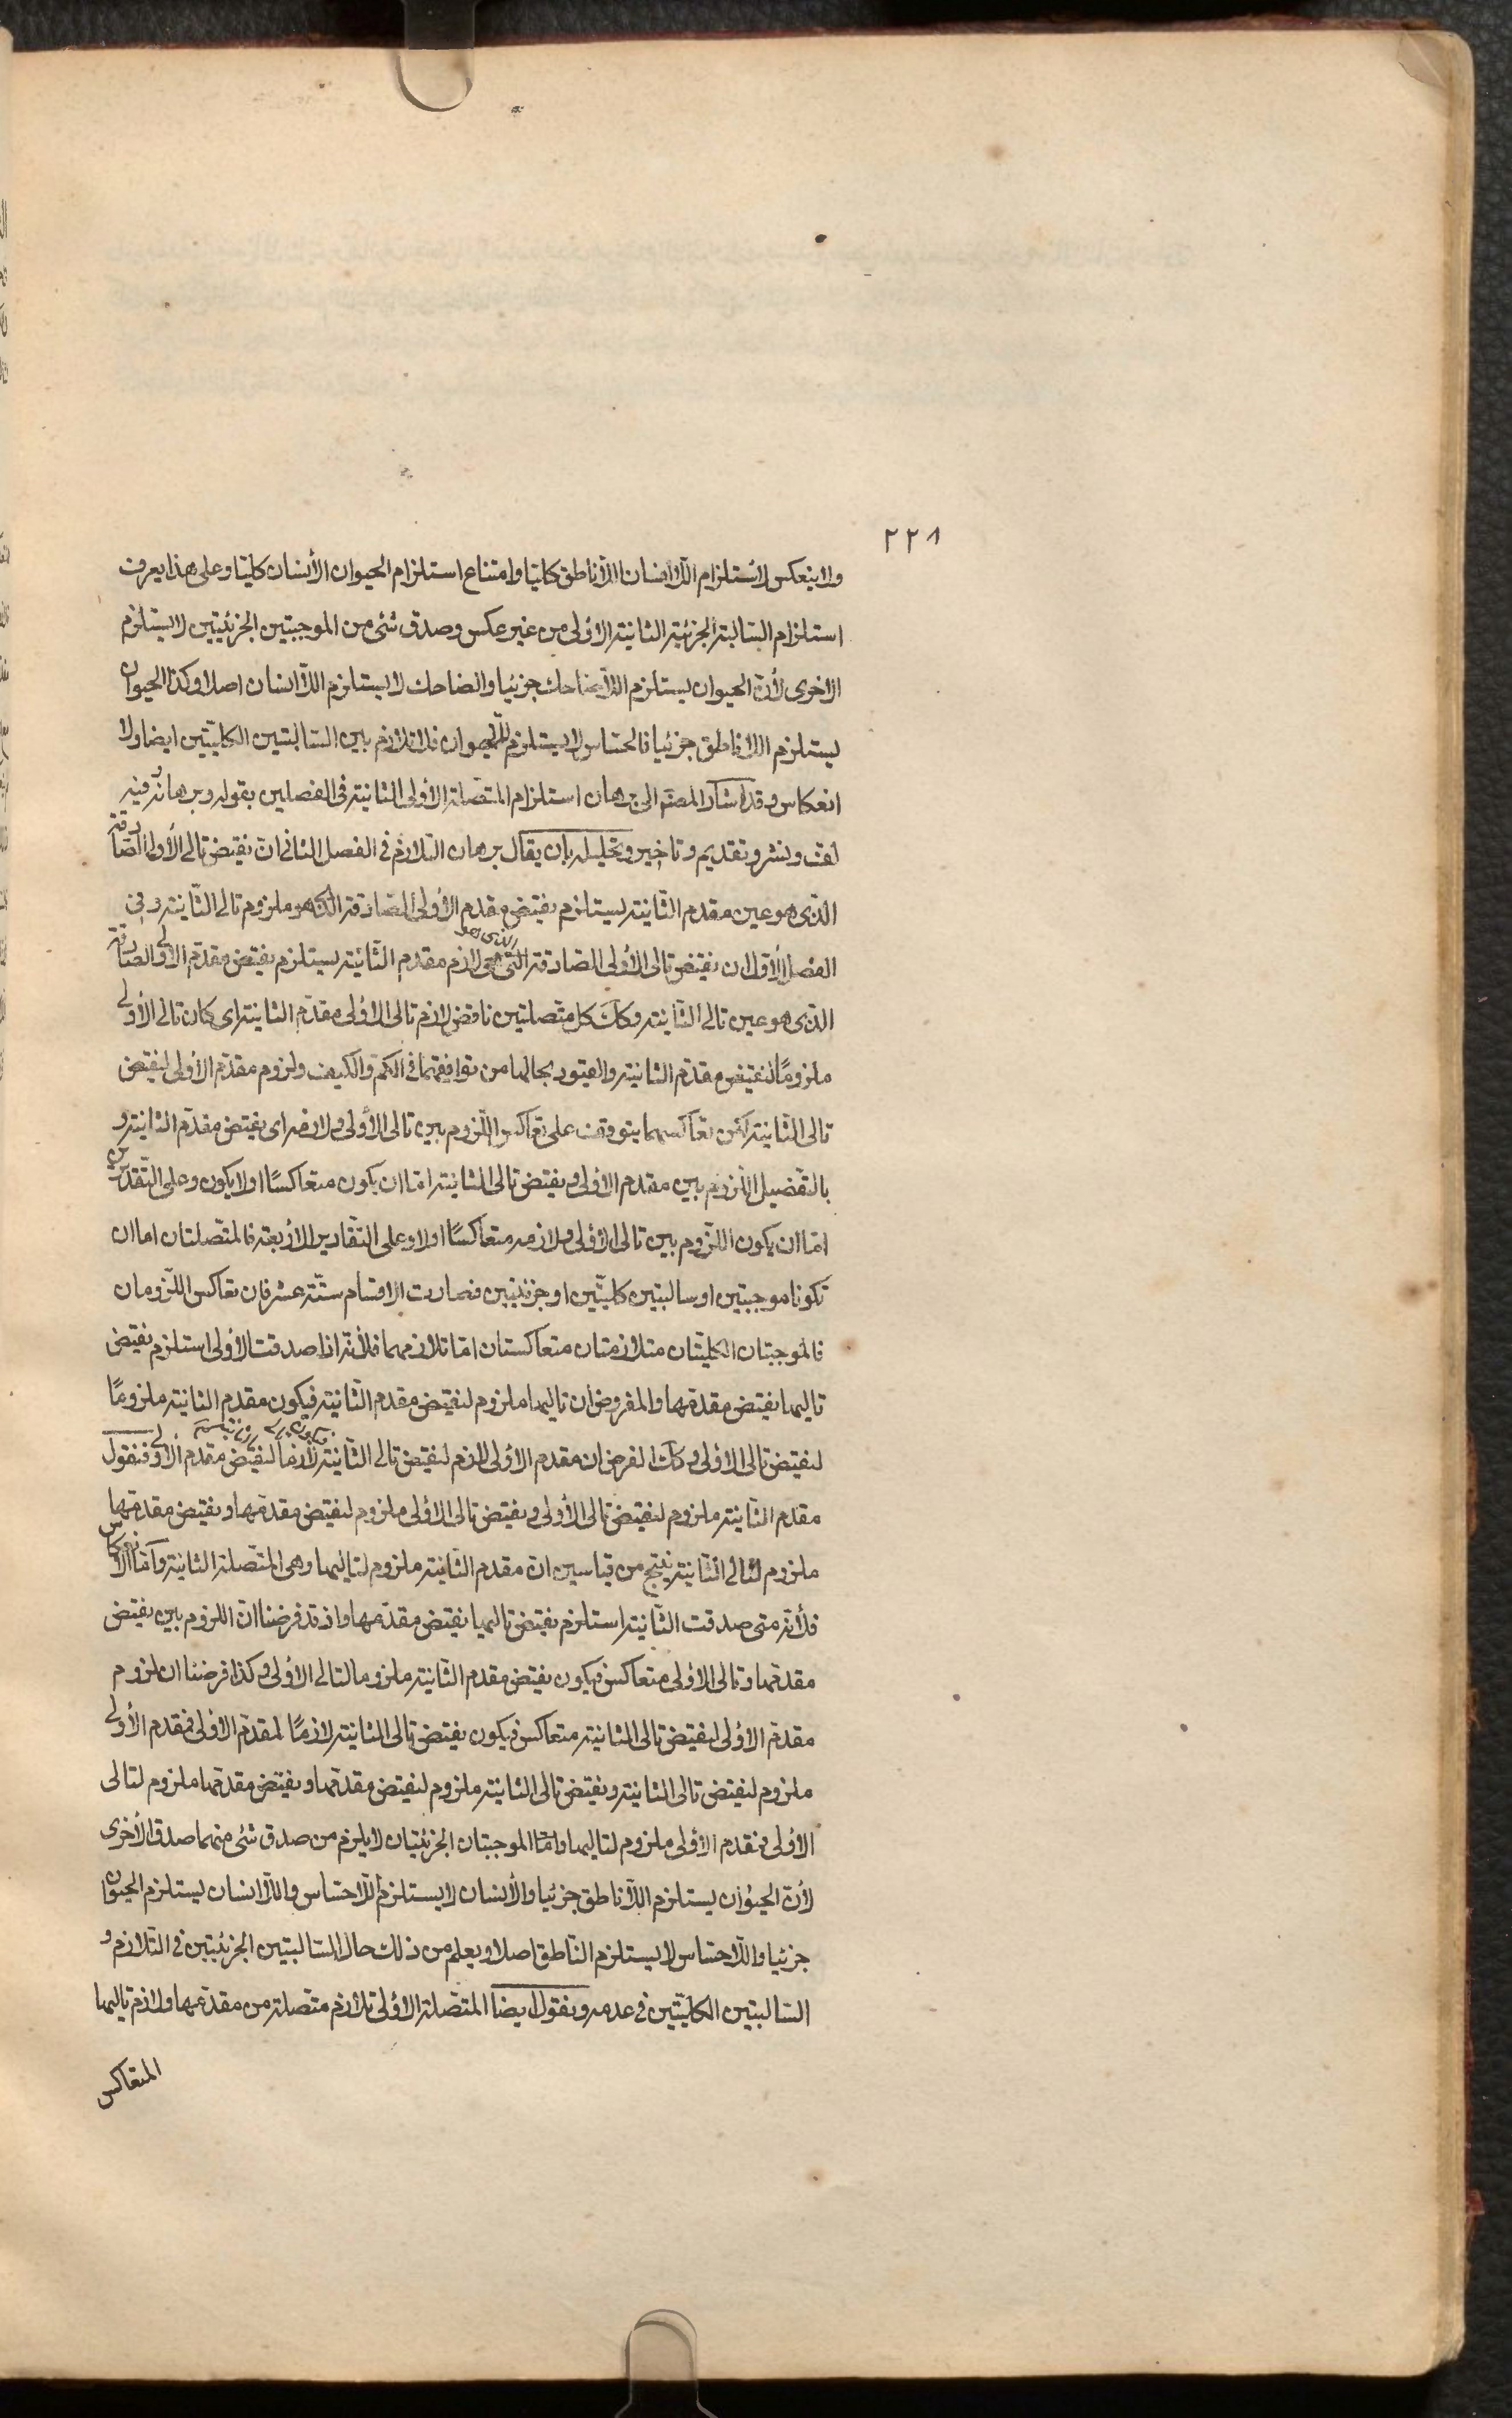 ٢٢٨
ولا ينعكس لاستلزام اللاانسان اللاناطق كليا وامتناع استلزام الحيوان الأنسان كليا وعلى هذا يعرف
استلزام السالبة الجزئية الثانية الاولى من غير عكس وصدق شئ من الموجبتين الجزئيتين لا يستلزم
الاخرى لأن الحيوان يستلزم اللاضاحك جزئيا والضاحك لا يستلزم اللاانسان اصلا وكذا الحيوان
يستلزم اللاناطق جزئيا فالحساس لا يستلزم للحيوان فلا تلازم بين السالبتين الكليتين ايضا ولا
انعكاس وقد اشار المصنّم الى برهان استلزام المتصلة الأولى الثانية فى الفصلين بقوله وبرهانه وفيه
لف ونشر وتقديم وتاخير وتحليله بان يقال برهان التلازم فى الفصل الثانى ان نقيض تالى الأولى الصادقة
الذى هو عين مقدم الثانية يستلزم نقيض مقدم الأولى الصادقة الذى هو ملزوم تالى الثانية وفى
الفصل الأول ان نقيض تالى الأولى الصادقة التى هى لازم مقدم الثانية يستلزم نقيض مقدم الاولى الصادقة
الذى هو
الذى هو عين تالى الثانية وكك كل متصلتين ناقض لازم تالى الاولى مقدم الثانية اى كان تالى الأولى
ملزومًا لنقيض مقدم الثانية والقيود بحالها من توافقهما فى الكم والكيف ولزوم مقدم الأولى لنقيض
تالى الثانية لكن تعاكسهما يتوقف على تعاكس اللزوم بين تالى الأولى ولازمه اى نقيض مقدم الثانية و
بالتفصيل اللزوم بين مقدم الاولى ونقيض تالى الثانية اما ان يكون متعاكسًا اولا يكون وعلى التقديرين
اما ان يكون اللزوم بين تالى الاولى ولازمه متعاكسًا اولا وعلى التقادير الأربعة فالمتصلتان اما ان
تكونا موجبتين او سالبتين كليتين او جزئيتين فصارت الاقسام ستة عشر فان تعاكس اللزومان
فالموجبتان الكليتان متلازمتان متعاكستان اما تلازمهما فلأنه اذا صدقت الأولى استلزم نقيض
تاليها نقيض مقدمها والمفروض ان تاليها ملزوم لنقيض مقدم الثانية فيكون مقدم الثانية ملزومًا
لنقيض تالى الاولى وكك الفرض ان مقدم الاولى لازم لنقيض تالى الثانية لازما لنقيض مقدم الاولى فنقول
مقدم الثانية ملزوم لنقيض تالى الأولى ونقيض تالى الاولى ملزوم لنقيض مقدمها ونقيض مقدمها
ملزوم لتالى الثانية ينتج من قياسين ان مقدم الثانية ملزوم لتاليها وهى المتصلة الثانية واما الانعكاس
فلأنه متى صدقت الثانية استلزم نقيض تاليها نقيض مقدمها واذ قد فرضنا ان اللزوم بين نقيض
مقدمها وتالى الاولى متعاكس فيكون نقيض مقدم الثانية ملزوما لتالى الاولى وكذا فرضنا ان لزوم
مقدم الاولى لنقيض تالى الثانية متعاكس فيكون نقيض تالى الثانية لازمًا لمقدم الاولى فمقدم الأولى
ملزوم لنقيض تالى الثانية ونقيض تالى الثانية ملزوم لنقيض مقدمها ونقيض مقدمها ملزوم لتالى
الأولى فمقدم الأولى ملزوم لتاليها واما الموجبتان الجزئيتان لا يلزم من صدق شئ منهما صدق الأخرى
لأن الحيوان يستلزم اللاناطق جزئيا والأنسان لا يستلزم اللاحساس واللاانسان يستلزم الحيوان
جزئيا واللاحساس لا يستلزم الناطق اصلا ويعلم من ذلك حال السالبتين الجزئيتين فى التلازم و
السالبتين الكليتين فى عدمه ونقول ايضا المتصلة الاولى تلازم متصلة من مقدمها ولازم تاليها
المتعاكس